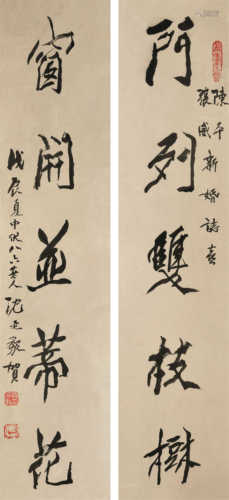 門列雙枝樹
陳平
威新婚誌喜
窗開並蒂花
戊辰夏中伏八六老人沈延毅賀